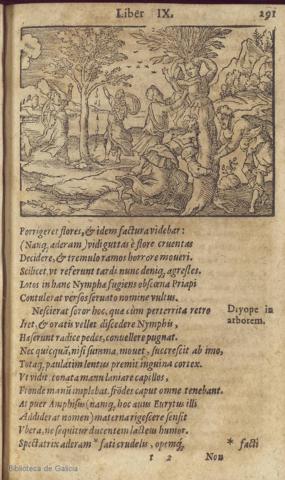 Liber IX. 291
Porrigeret flores, & idem factura videbar:
(Namq, aderam) vidi guttas è flore cruentas
Decidere, & tremulo ramos horrore moueri.
Scilicet, vt referunt tardi nunc deniq, agrestes,
Lotos in hanc Nymphe fugiens obscœna Priapi
Contulerat versos seruato nomine vultus.
Nescierat soror hoc, quæ cùm perterrita retro
Dryope in
Iret, & oratis vellet discedere Nymphis,
arborem.
Hæserunt radice pedes, conuellere pugnat.
Nec quicquã, nisi summa, mouet, succrescit ab imo,
Totaq, paulatim lentus premit inguina cortex.
Vt vidit, conata manu laniare capillos,
Fronde manũ impleuit: frõdes caput omne tenebant.
At puer Amphisus (namq, hoc auus Eurytus illi
Addiderat nomen) materna rigescere sensit
Vbera, nec sequitur ducentem lacteus humor.
Spectatrix aderam * fati crudelis, opemq, * facti
t 2 Non
Biblioteca de Galicia